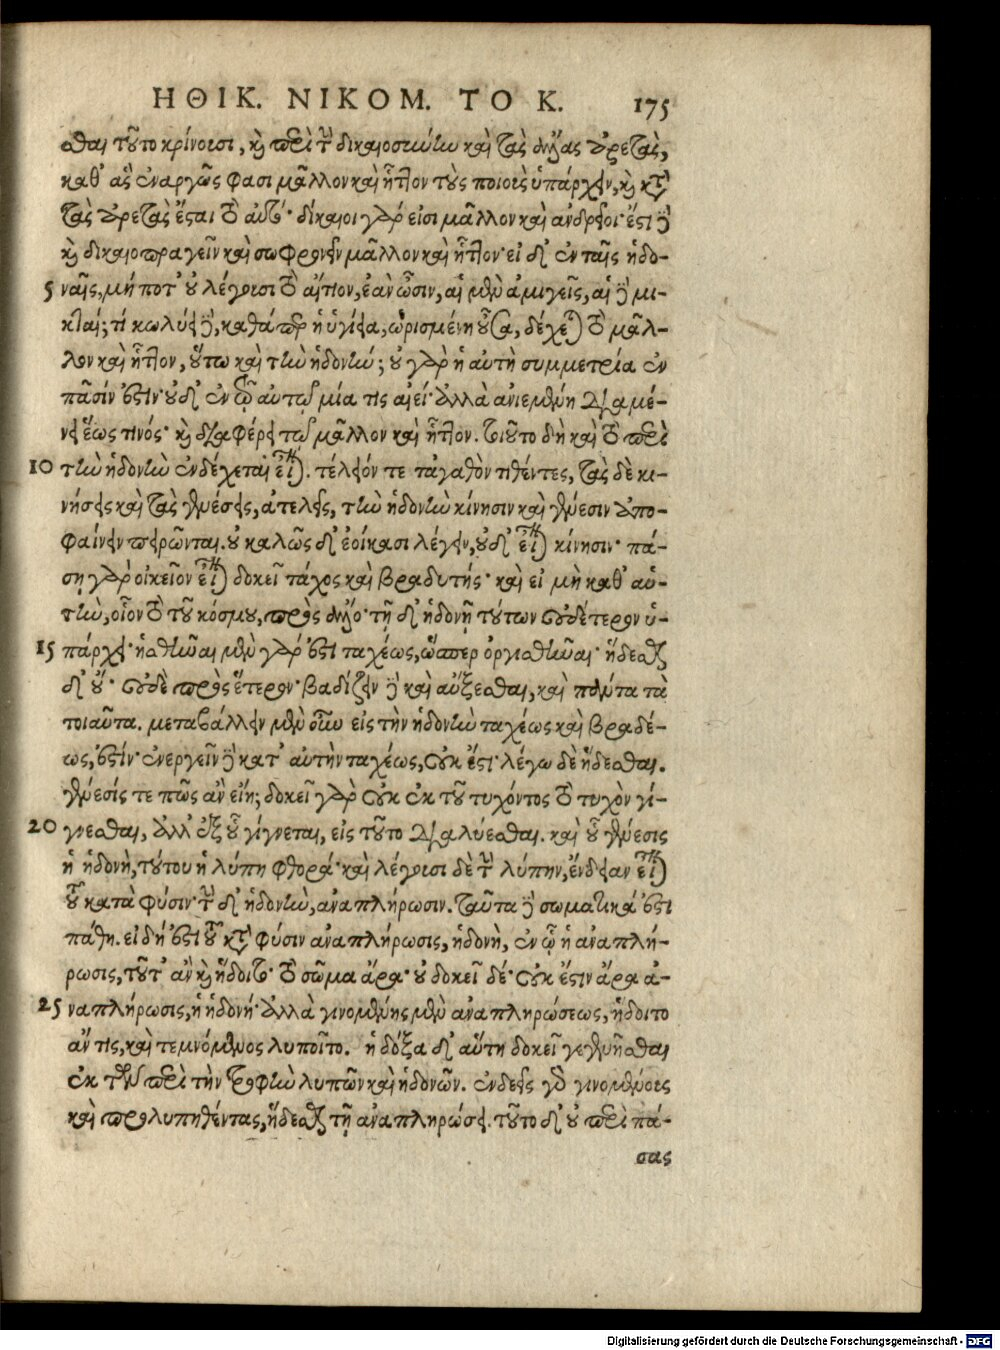 ΗΘΙΚ. ΝΙΚΟΜ. ΤΟ Κ. 175
σθαι τοῦτο κρίνουσι, καὶ περὶ τὴν δικαιοσύνην καὶ τὰς ἄλλας ἀρετὰς,
καθ' ἃς ἐναργῶς φασι μᾶλλον καὶ ἧττον τοὺς ποιοὺς ὑπάρχειν, καὶ κατὰ
τὰς ἀρετὰς ἔσται τὸ αὐτό· δίκαιοι γάρ εἰσι μᾶλλον καὶ ἀνδρεῖοι· ἔστι δὲ
καὶ δικαιοπραγεῖν καὶ σωφρονεῖν μᾶλλον καὶ ἧττον· εἰ δ' ἐν ταῖς ἡδο-
5 ναῖς, μή ποτ' οὐ λέγουσι τὸ αἴτιον, ἐὰν ὦσιν, αἱ μὲν ἀμιγεῖς, αἱ δὲ μι-
κταί; τί κωλύει δὲ, καθάπερ ἡ ὑγίεια, ὡρισμένη οὖσα, δέχεται τὸ μᾶλ-
λον καὶ ἧττον, οὕτω καὶ τὴν ἡδονήν; οὐ γὰρ ἡ αὐτὴ συμμετρία ἐν
πᾶσίν ἐστιν· οὐδ' ἐν τῷ αὐτῷ μία τις αἰεί· ἀλλὰ ἀνιεμένη διαμέ-
νει ἕως τινός· καὶ διαφέρει τῷ μᾶλλον καὶ ἧττον. τοιοῦτο δὴ καὶ τὸ περὶ
10 τὴν ἡδονὴν ἐνδέχεται εἶναι. τέλειόν τε τἀγαθὸν τιθέντες, τὰς δὲ κι-
νήσεις καὶ τὰς γενέσεις, ἀτελεῖς, τὴν ἡδονὴν κίνησιν καὶ γένεσιν ἀπο-
φαίνειν πειρῶνται. οὐ καλῶς δ' ἐοίκασι λέγειν, οὐδ' εἶναι κίνησιν· πά-
σῃ γὰρ οἰκεῖον εἶναι δοκεῖ τάχος καὶ βραδυτής· καὶ εἰ μὴ καθ' αὑ-
τὴν, οἷον τὸ τοῦ κόσμου, πρὸς ἄλλο· τῇ δ' ἡδονῇ τούτων οὐδέτερον ὑ-
15 πάρχει· ἡσθῆναι μὲν γὰρ ἔστι ταχέως, ὥσπερ ὀργισθῆναι· ἥδεσθαι
δ' οὔ· οὐδὲ πρὸς ἕτερον· βαδίζειν δὲ καὶ αὔξεσθαι, καὶ πάντα τὰ
τοιαῦτα. μεταβάλλειν μὲν οὖν εἰς τὴν ἡδονὴν ταχέως καὶ βραδέ-
ως, ἔστιν· ἐνεργεῖν δὲ κατ' αὐτὴν ταχέως, οὐκ ἔστι· λέγω δὲ ἥδεσθαι.
γένεσίς τε πῶς ἂν εἴη; δοκεῖ γὰρ οὐκ ἐκ τοῦ τυχόντος τὸ τυχὸν γί-
20 γνεσθαι, ἀλλ' ἐξ οὗ γίγνεται, εἰς τοῦτο διαλύεσθαι. καὶ οὗ γένεσις
ἡ ἡδονὴ, τούτου ἡ λύπη φθορά· καὶ λέγουσι δὲ τὴν λύπην, ἔνδειαν εἶναι
τοῦ κατὰ φύσιν· τὴν δ' ἡδονὴν, ἀναπλήρωσιν. ταῦτα δὲ σωματικά ἐστι
πάθη. εἰ δή ἐστι τοῦ κατὰ φύσιν ἀναπλήρωσις, ἡδονὴ, ἐν ᾧ ἡ ἀναπλή-
ρωσις, τοῦτ' ἂν καὶ ἥδοιτο· τὸ σῶμα ἄρα· οὐ δοκεῖ δέ· οὐκ ἔστιν ἄρα ἀ-
25 ναπλήρωσις, ἡ ἡδονή· ἀλλὰ γινομένης μὲν ἀναπληρώσεως, ἥδοιτο
ἄν τις, καὶ τεμνόμενος λυποῖτο. ἡ δόξα δ' αὕτη δοκεῖ γεγενῆσθαι
ἐκ τῶν περὶ τὴν τροφὴν λυπῶν καὶ ἡδονῶν. ἐνδεεῖς γὰρ γινομένους
καὶ προλυπηθέντας, ἥδεσθαι τῇ ἀναπληρώσει. τοῦτο δ' οὐ περὶ πά-
σας
Digitalisierung gefördert durch die Deutsche Forschungsgemeinschaft - DFG